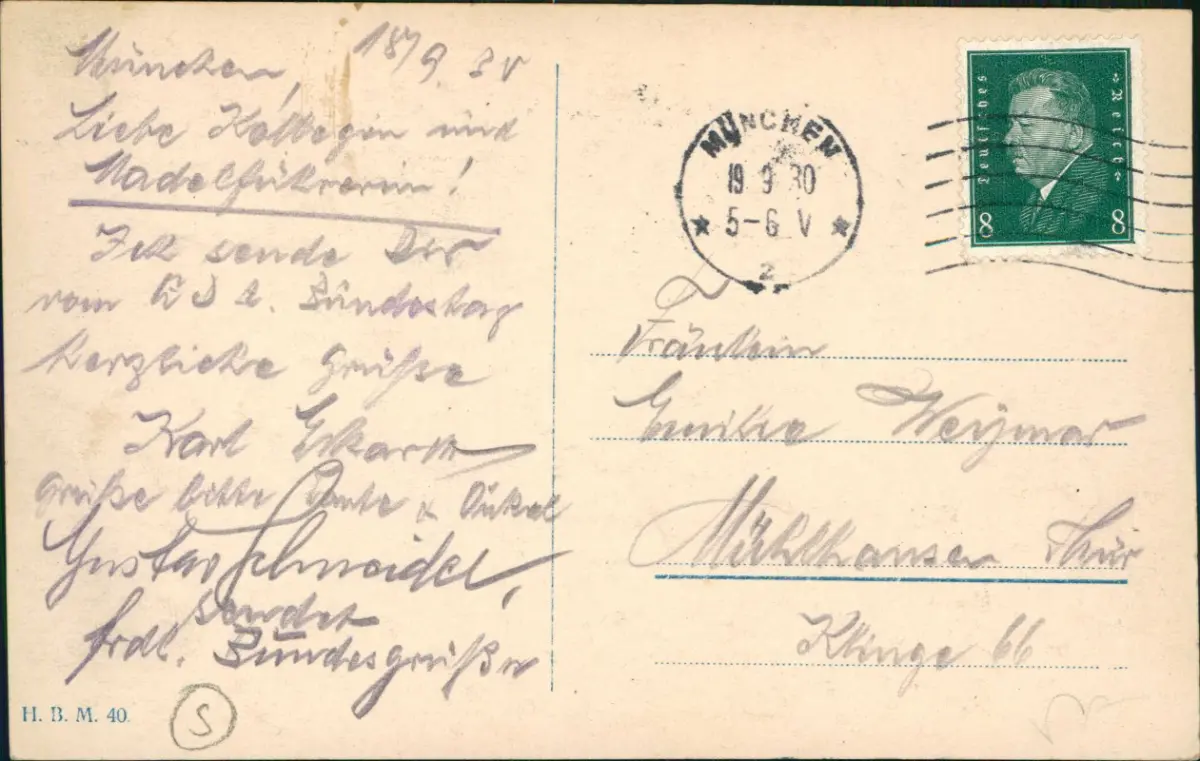 München, 18/9. 30
Liebe Kollegin und
Madelführerin!
Ich sende Dir
vom Bundestag
herzliche Grüße
Karl Eckardt
Grüße bitte Tante & Onkel
Gustav Schneidel,
sendet
frdl. Bundesgrüße
H. B. M. 40.
S
MÜNCHEN
19 9 30
5-6 V
2
Deutsches Reich
8 8
Fräulein
Emilie Weymar
Mühlhausen Thür
Klinge 66